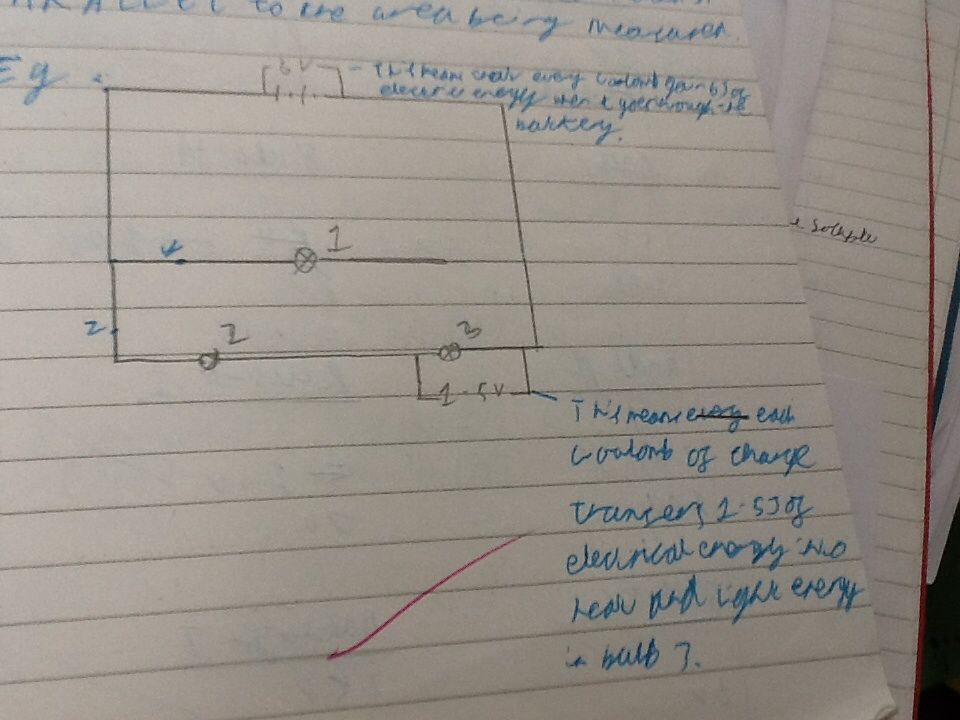 to the area being measured.
Eg
3 V - This means that every coulomb gains 3J of
electric energy when it goes through the
battery.
e soluble
1
2
2
3
1.5V
This means every each
coulomb of charge
transfers 1.5J of
electrical energy into
heat and light energy
in bulb 3.